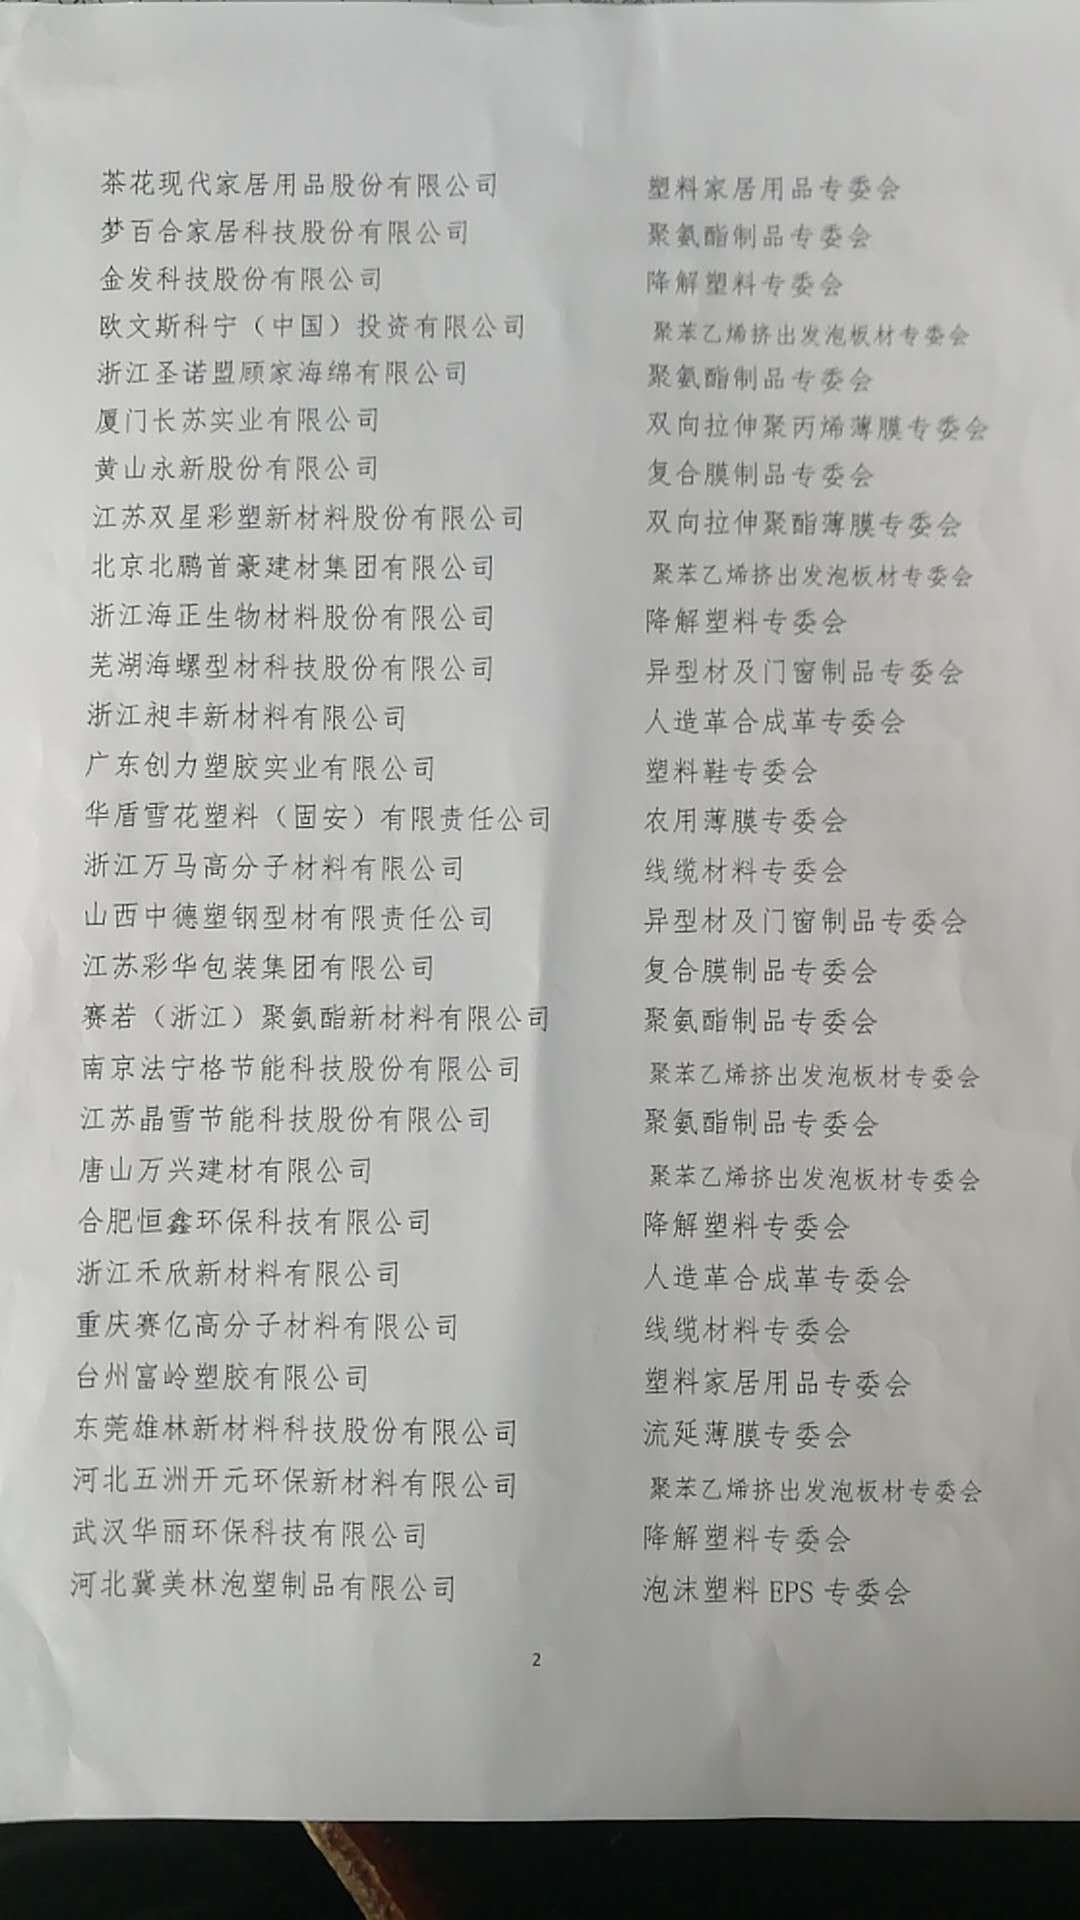 茶花现代家居用品股份有限公司 塑料家居用品专委会
梦百合家居科技股份有限公司 聚氨酯制品专委会
金发科技股份有限公司 降解塑料专委会
欧文斯科宁（中国）投资有限公司 聚苯乙烯挤出发泡板材专委会
浙江圣诺盟顾家海绵有限公司 聚氨酯制品专委会
厦门长苏实业有限公司 双向拉伸聚丙烯薄膜专委会
黄山永新股份有限公司 复合膜制品专委会
江苏双星彩塑新材料股份有限公司 双向拉伸聚酯薄膜专委会
北京北鹏首豪建材集团有限公司 聚苯乙烯挤出发泡板材专委会
浙江海正生物材料股份有限公司 降解塑料专委会
芜湖海螺型材科技股份有限公司 异型材及门窗制品专委会
浙江昶丰新材料有限公司 人造革合成革专委会
广东创力塑胶实业有限公司 塑料鞋专委会
华盾雪花塑料（固安）有限责任公司 农用薄膜专委会
浙江万马高分子材料有限公司 线缆材料专委会
山西中德塑钢型材有限责任公司 异型材及门窗制品专委会
江苏彩华包装集团有限公司 复合膜制品专委会
赛若（浙江）聚氨酯新材料有限公司 聚氨酯制品专委会
南京法宁格节能科技股份有限公司 聚苯乙烯挤出发泡板材专委会
江苏晶雪节能科技股份有限公司 聚氨酯制品专委会
唐山万兴建材有限公司 聚苯乙烯挤出发泡板材专委会
合肥恒鑫环保科技有限公司 降解塑料专委会
浙江禾欣新材料有限公司 人造革合成革专委会
重庆赛亿高分子材料有限公司 线缆材料专委会
台州富岭塑胶有限公司 塑料家居用品专委会
东莞雄林新材料科技股份有限公司 流延薄膜专委会
河北五洲开元环保新材料有限公司 聚苯乙烯挤出发泡板材专委会
武汉华丽环保科技有限公司 降解塑料专委会
河北冀美林泡塑制品有限公司 泡沫塑料 EPS 专委会
2